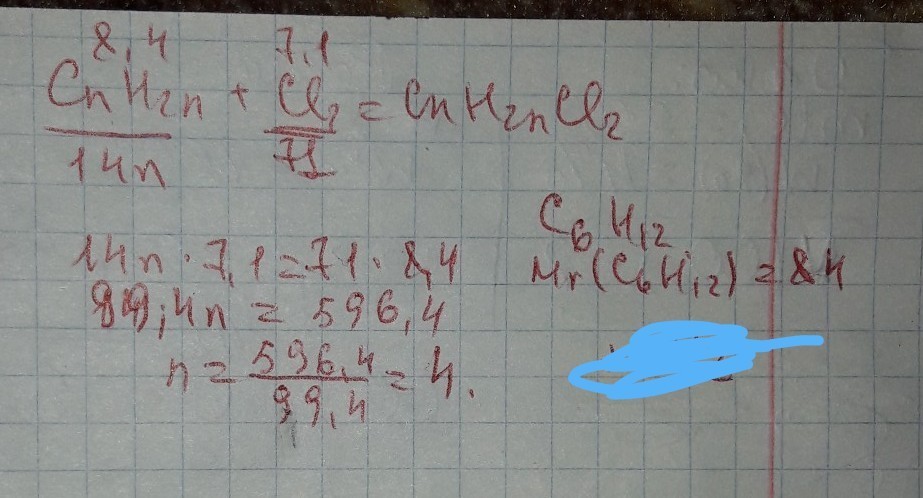 8,4 7,1
CnH2n + Cl2 = CnH2nCl2
14n 71
C6H12
14n · 7,1 = 71 · 8,4
Mr(C6H12) = 84
99,4n = 596,4
n = 596,4 / 99,4 = 4.